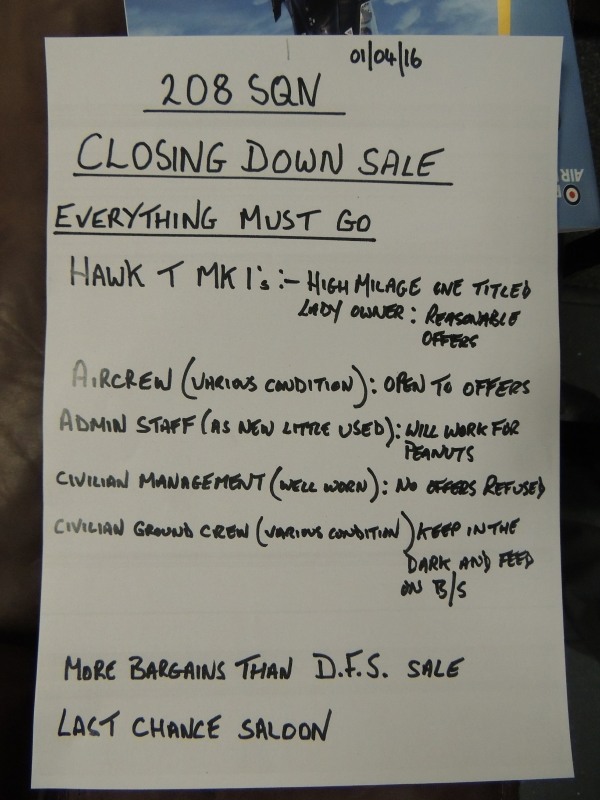 01/04/16
208 SQN
CLOSING DOWN SALE
EVERYTHING MUST GO
HAWK T MK 1's :- HIGH MILAGE ONE TITLED
LADY OWNER : REASONABLE
OFFERS
AIRCREW (VARIOUS CONDITION) : OPEN TO OFFERS
ADMIN STAFF (AS NEW LITTLE USED) : WILL WORK FOR
PEANUTS
CIVILIAN MANAGEMENT (WELL WORN) : NO OFFERS REFUSED
CIVILIAN GROUND CREW (VARIOUS CONDITION) KEEP IN THE
DARK AND FEED
ON B/S
MORE BARGAINS THAN D.F.S. SALE
LAST CHANCE SALOON
AIR